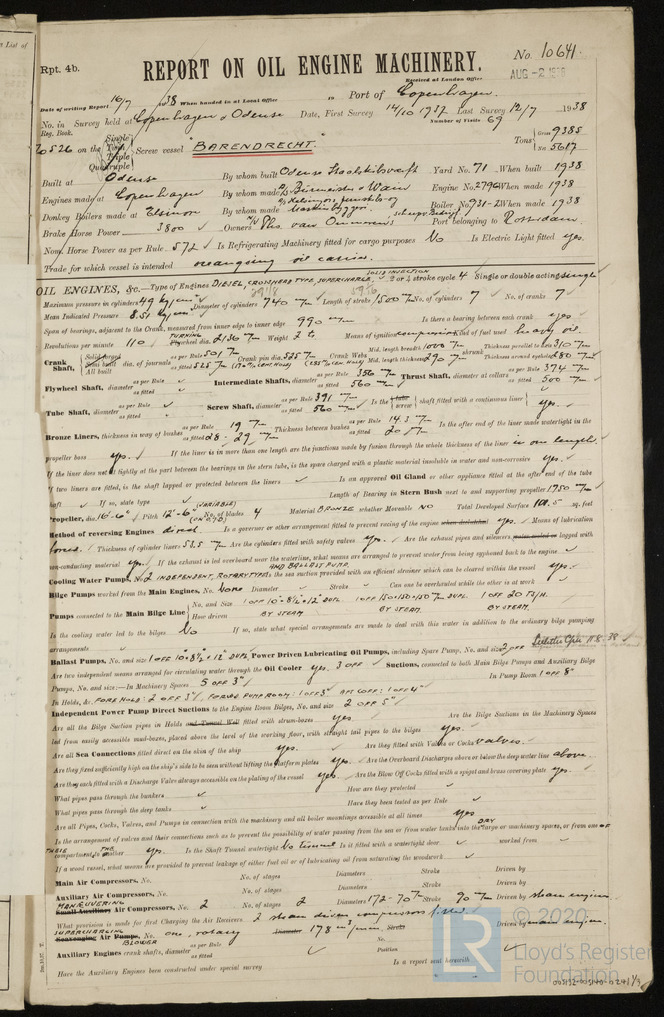 Rpt. 4b.
REPORT ON OIL ENGINE MACHINERY.
No. 10641.
Received at London Office
AUG -2 1938
Date of writing Report 16/7 1938 When handed in at Local Office 19 Port of Copenhagen.
No. in Survey held at Copenhagen & Odense Date, First Survey 14/10 1937 Last Survey 12/7 1938
Reg. Book. Number of Visits 69
on the Single Twin Triple Quadruple Screw vessel "BARENDRECHT." Tons Gross 9385 Net 5617
Built at Odense By whom built Odense Staalskibsværft Yard No. 71 When built 1938
Engines made at Copenhagen By whom made A/S Burmeister & Wain Engine No. When made 1938
Donkey Boilers made at Elsinore By whom made Boiler No. When made 1938
Brake Horse Power 3800 Owners Phs. van Ommeren's Port belonging to Rotterdam
Nom. Horse Power as per Rule 572 Is Refrigerating Machinery fitted for cargo purposes No Is Electric Light fitted yes.
Trade for which vessel is intended oil carrier.
OIL ENGINES, &c.—Type of Engines DIESEL, CROSSHEAD TYPE, SUPERCHARGE, SOLID INJECTION 2 or 4 stroke cycle 4 Single or double acting single
Maximum pressure in cylinders 49 kg/cm² Diameter of cylinders 740 m/m Length of stroke 1500 m/m No. of cylinders 7 No. of cranks 7
Mean Indicated Pressure 8.51 kg/cm²
Span of bearings, adjacent to the Crank, measured from inner edge to inner edge 990 m/m Is there a bearing between each crank yes
Revolutions per minute 110 TURNING wheel dia. 2136 m/m Weight 2 t. Means of ignition compression Kind of fuel used heavy oil.
Crank Shaft, Solid forged Semi built All built dia. of journals as per Rule 501 m/m as fitted 525 m/m Crank pin dia. 525 m/m Crank Webs Mid. length breadth 1000 m/m Mid. length thickness 290 m/m shrunk Thickness parallel to axis 310 m/m Thickness around eyehole 280 m/m
Flywheel Shaft, diameter as per Rule as fitted Intermediate Shafts, diameter as per Rule 356 m/m as fitted 560 m/m Thrust Shaft, diameter at collars as per Rule 374 m/m as fitted 500 m/m
Tube Shaft, diameter as per Rule as fitted Screw Shaft, diameter as per Rule 391 m/m as fitted 560 m/m Is the tube screw shaft fitted with a continuous liner yes.
Bronze Liners, thickness in way of bushes as per Rule 19 m/m as fitted 28 - 29 m/m Thickness between bushes as per Rule 14.3 m/m as fitted 20 m/m Is the after end of the liner made watertight in the
propeller boss yes. If the liner is in more than one length are the junctions made by fusion through the whole thickness of the liner in one length.
If the liner does not fit tightly at the part between the bearings in the stern tube, is the space charged with a plastic material insoluble in water and non-corrosive yes.
If two liners are fitted, is the shaft lapped or protected between the liners Is an approved Oil Gland or other appliance fitted at the after end of the tube
shaft If so, state type Length of Bearing in Stern Bush next to and supporting propeller 1750 m/m
Propeller, dia. 16'-6" Pitch 12'-6" (VARIABLE) No. of blades 4 Material BRONZE whether Moveable NO Total Developed Surface 101.5 sq. feet
Method of reversing Engines direct Is a governor or other arrangement fitted to prevent racing of the engine when declutched yes. Means of lubrication
forced. Thickness of cylinder liners 53.5 m/m Are the cylinders fitted with safety valves yes. Are the exhaust pipes and silencers water cooled or lagged with
non-conducting material yes. If the exhaust is led overboard near the waterline, what means are arranged to prevent water from being syphoned back to the engine
Cooling Water Pumps, No. 2 INDEPENDENT, ROTARY TYPE AND BALLAST PUMP. Is the sea suction provided with an efficient strainer which can be cleared within the vessel yes.
Bilge Pumps worked from the Main Engines, No. None Diameter Stroke Can one be overhauled while the other is at work
Pumps connected to the Main Bilge Line No. and Size 1 OFF 10"×8½"×12" DUPL. 1 OFF 150×150×150 m/m DUPL. 1 OFF 20 TS/H.
How driven BY STEAM BY STEAM. BY STEAM.
Is the cooling water led to the bilges No If so, state what special arrangements are made to deal with this water in addition to the ordinary bilge pumping
arrangements
Ballast Pumps, No. and size 1 OFF 10"×8½"×12" DUPL. Power Driven Lubricating Oil Pumps, including Spare Pump, No. and size 2 off
Are two independent means arranged for circulating water through the Oil Cooler yes. 3 OFF Suctions, connected to both Main Bilge Pumps and Auxiliary Bilge
Pumps, No. and size:—In Machinery Spaces 5 OFF 3" In Pump Room 1 OFF 8"
In Holds, &c. FORE HOLD: 2 OFF 3", FORWD PUMP ROOM: 1 OFF 3" AFT COFF: 1 OFF 4"
Independent Power Pump Direct Suctions to the Engine Room Bilges, No. and size 2 OFF 5"
Are all the Bilge Suction pipes in Holds and Tunnel Well fitted with strum-boxes yes Are the Bilge Suctions in the Machinery Spaces
led from easily accessible mud-boxes, placed above the level of the working floor, with straight tail pipes to the bilges yes
Are all Sea Connections fitted direct on the skin of the ship yes. Are they fitted with Valves or Cocks valves.
Are they fixed sufficiently high on the ship's side to be seen without lifting the platform plates yes. Are the Overboard Discharges above or below the deep water line above.
Are they each fitted with a Discharge Valve always accessible on the plating of the vessel yes. Are the Blow Off Cocks fitted with a spigot and brass covering plate yes.
What pipes pass through the bunkers How are they protected
What pipes pass through the deep tanks Have they been tested as per Rule
Are all Pipes, Cocks, Valves, and Pumps in connection with the machinery and all boiler mountings accessible at all times yes
Is the arrangement of valves and their connections such as to prevent the possibility of water passing from the sea or from water tanks into the DRY cargo or machinery spaces, or from one OF
THESE compartment to THE another yes. Is the Shaft Tunnel watertight No tunnel Is it fitted with a watertight door worked from
If a wood vessel, what means are provided to prevent leakage of either fuel oil or of lubricating oil from saturating the woodwork
Main Air Compressors, No. No. of stages Diameters Stroke Driven by
Auxiliary Air Compressors, No. No. of stages Diameters Stroke Driven by
MANŒUVERING Small Auxiliary Air Compressors, No. 2 No. of stages 2 Diameters 172 - 70 m/m Stroke 90 m/m Driven by steam engine
What provision is made for first Charging the Air Receivers 2 steam driven compressors fitted.
SUPERCHARGING Scavenging Air Pumps, No. one, rotary BLOWER Diameter 178 m³/min. Stroke Driven by main engine.
Auxiliary Engines crank shafts, diameter as per Rule as fitted No. Position
Have the Auxiliary Engines been constructed under special survey Is a report sent herewith
© 2020
LR
Lloyd's Register
Foundation